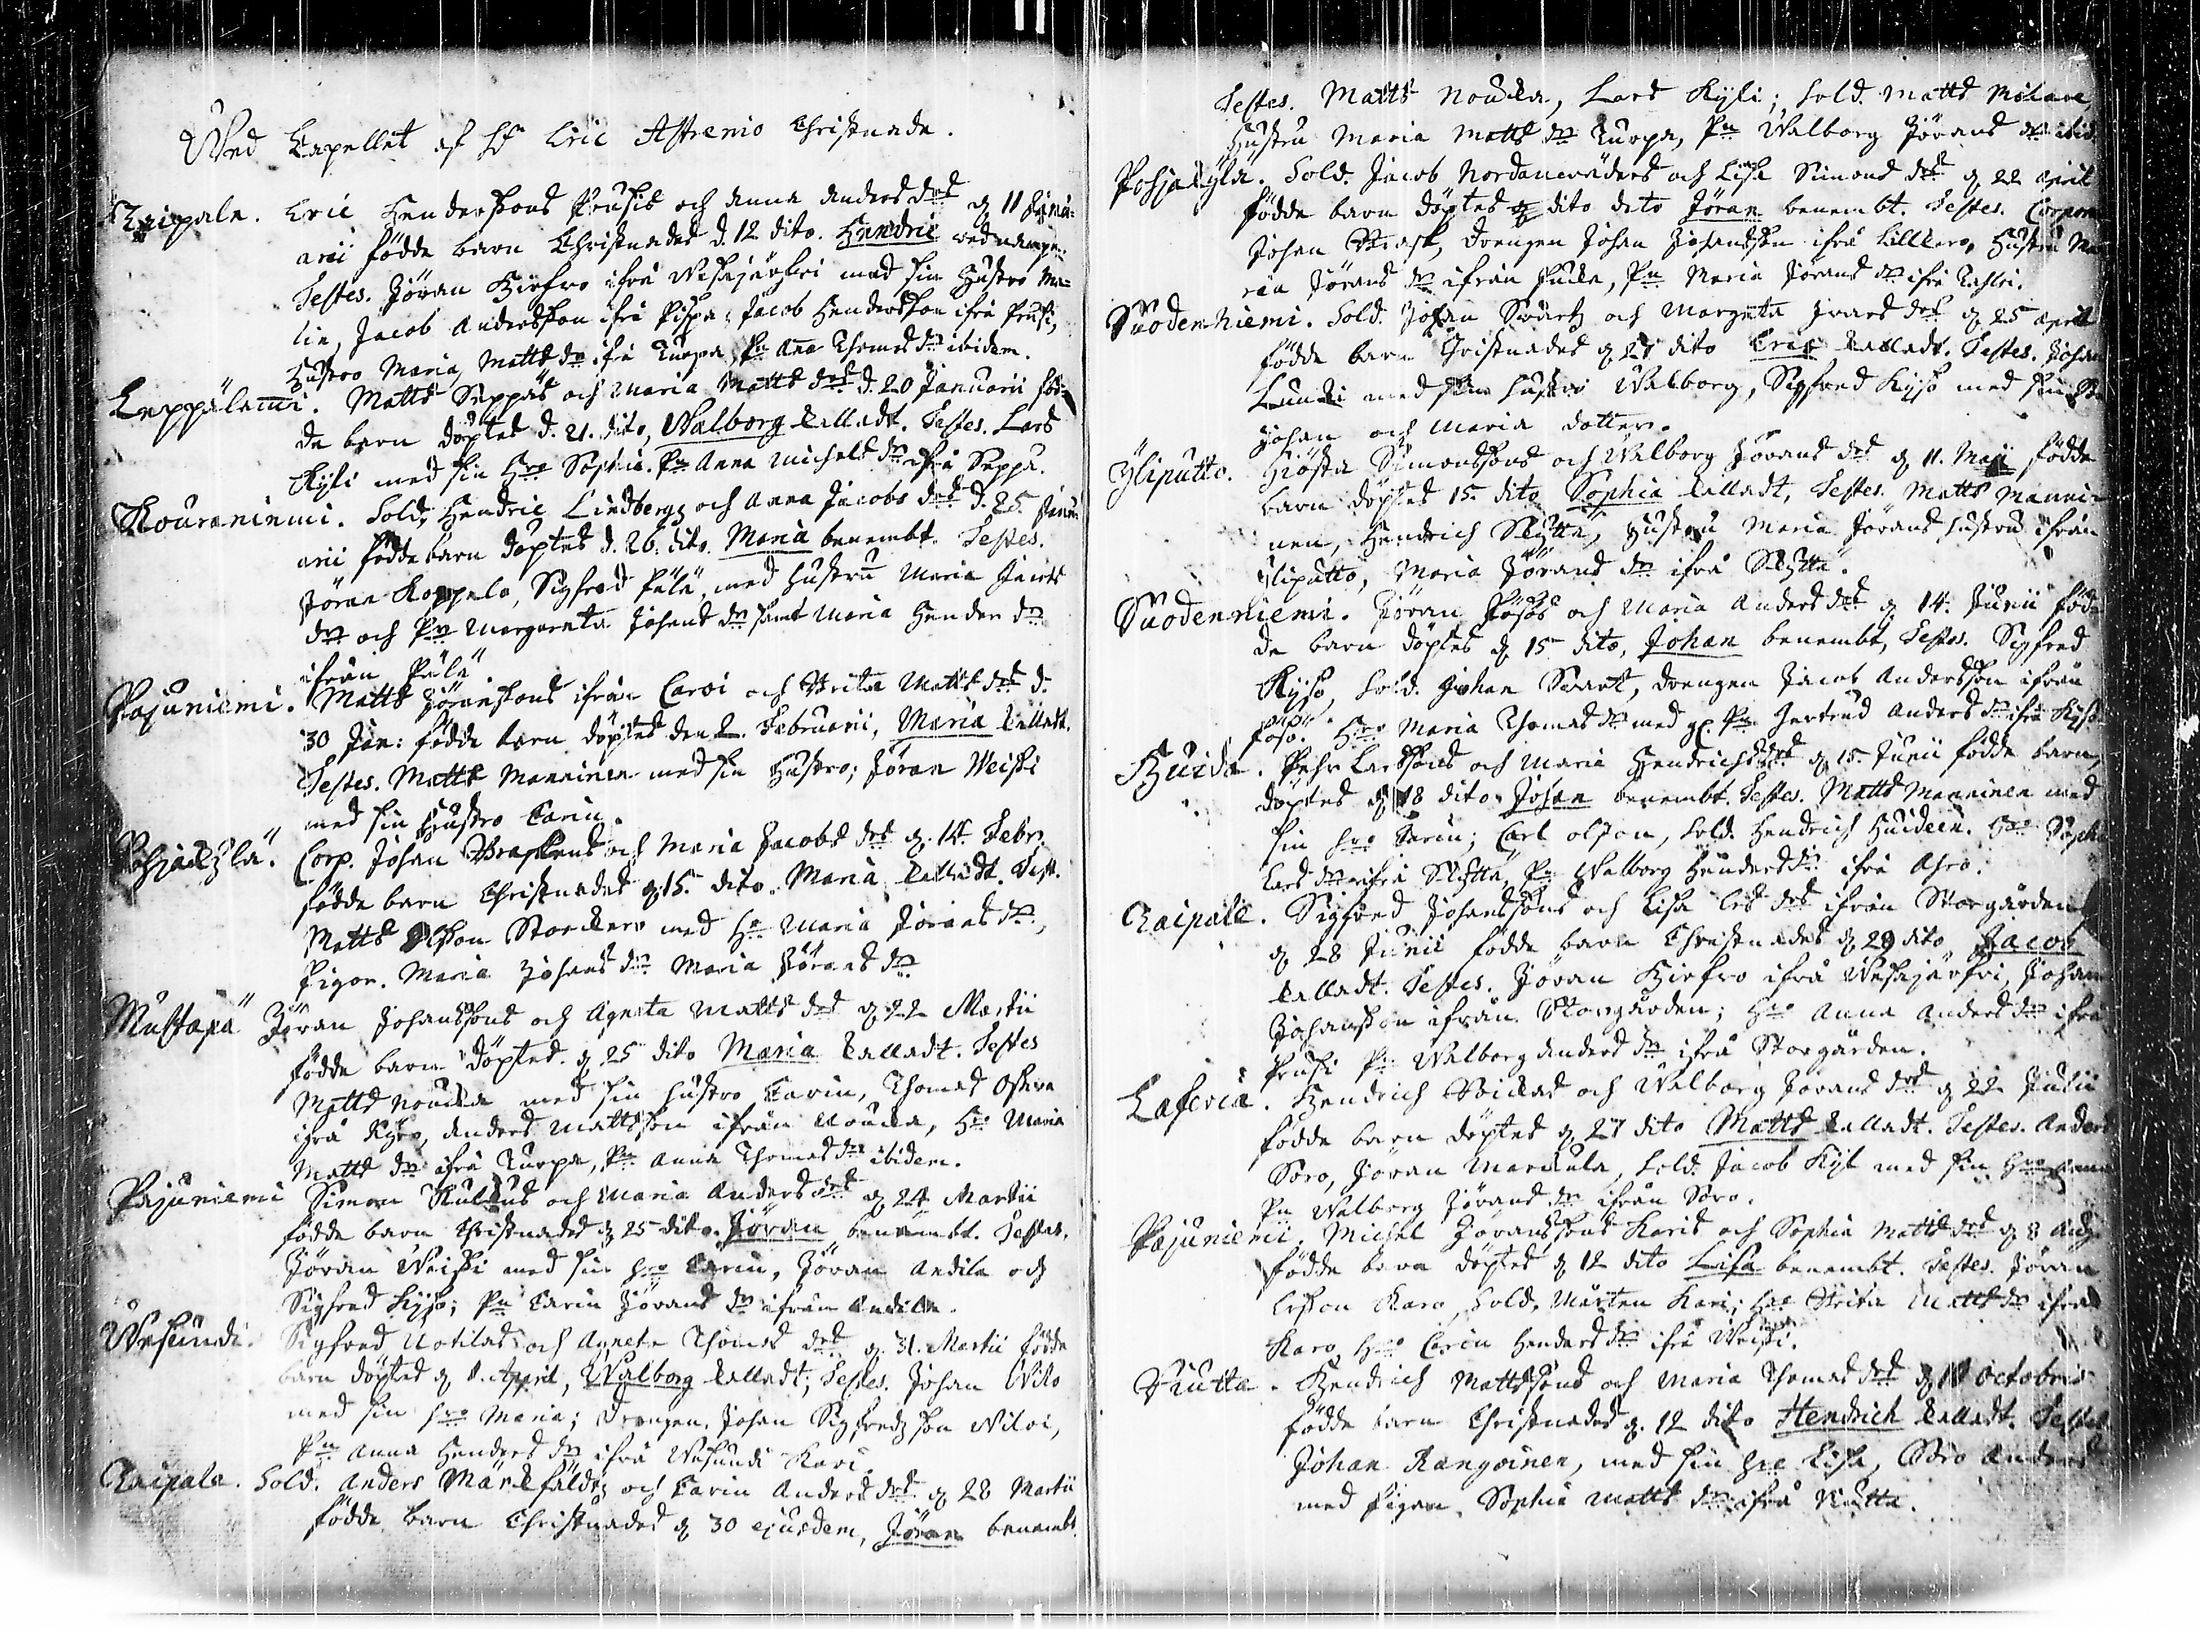 Wed Capellet af H:r Eric Astrenio Christnade.
Raipala. Eric Henderssons Prusis och Anna Anders dr̃s d. 11 Janu-
arii födde barn Christnades d. 12 dito. Hendric
Testes. Jöran Hirfwo ifrå Wesajärfwi med sin Hustro Ma-
lin, Jacob Andersson ifrå Pispa, Jacob Hendersson ifrå Prusi,
Hustro Maria Matts dr̃ ifrå Turpa, P:n Anna Thomas dr̃ ibidem.
Leppälami. Matts Seppäs och Maria Matts dr̃s d. 20 Januarii föd-
de barn döptes d. 21. dito, Walborg kalladt. Testes. Lars
Kyli med sin H:ro Sophia. P:n Anna Michels dr̃ ifrå Seppä.
Kouraniemi. Sold. Hendric Lindbergz och Anna Jacobs dr̃s d. 25. Janu-
arii födde barn döptes d. 26. dito. Maria benembt. Testes.
Jöran Koppelo, Sigfred Pälä, med Hustru Maria Jacobs
dr̃ och P:n Margareta Johans dr̃ samt Maria Henders dr̃
ifrån Pälä.
Pajuniemi. Matts Jöranssons ifrån Caroi och Brita Matts dr̃s d.
30 Jan: födde barn döptes den 2. Februarii, Maria kalladt.
Testes. Matts Manninen med sin Hustro; Jöran Weissi
med sin Hustro Carin.
Pohjakylä. Corp. Johan Braskens och Maria Jacobs dr̃s d. 14. Febr.
födde barn Christnades d. 15. dito. Maria kalladt. Test.
Matts Olsson Storckero med H:o Maria Jörans dr̃,
Pigor. Maria Johans dr̃ Maria Jörans dr̃
Mustapä Jöran Johanssons och Agneta Matts dr̃s d. 22 Martii
födde barn döptes. d. 25 dito Maria kalladt. Testes
Matts Noucka med sin hustro Carin, Thomas
ifrå Kyro, Anders Mattsson ifrån Noucka, H:o Maria
Matts dr̃ ifrå Turpa, P:n Anna Thomas dr̃ ibidem.
Pajuniemi Simon Kulkus och Maria Anders dr̃s d. 24 Martii
födde barn Christnades d. 25 dito. Jöran benembt. Testes.
Jöran Weissi med sin H:ro Carin, Jöran Andila och
Sigfred Kysö; P:n Carin Jörans dr̃ ifrån Andila.
Wesundi. Sigfred Uotilas och Agneta Thomas dr̃s d. 31. Martii födde
barn döptes d. 1. April, Walborg kalladt; Testes. Johan Wilo
med sin H:ro Maria; Drengen Johan Sigfredz son Wiloi,
P:n Anna Henders dr̃ ifrå Wesundi Kari.
Raipala. Sold. Anders Märkfäldz och Carin Anders dr̃s d. 28 Martii
födde barn Christnades d. 30 ejusdem, Jöran benembt.
Testes. Matts Noucka, Lars Kyli; Sold. Matts
Hustru Maria Matts dr̃ Turpa, P:n Walborg Jörans dr̃ ibid.
Pohjakylä. Sold. Jacob Nordanwäders och Lisa Simons dr̃s d. 22 April
födde barn döptes d. dito dito Jöran benembt. Testes. Corporal
Johan Brask, drengen Johan Johansson ifrå Hustru Ma-
ria Jörans dr̃ ifrån P:n Maria Jörans dr̃ ifrå
Suodenniemi. Sold. Johan Swartz och Margeta Ivars dr̃s d. 25 April
födde barn Christnades d. 27 dito Eric kalladt. Testes. Johan
Luucki med sin hustro Walborg, Sigfred Kysö med sin
Johan och Maria dotter.
Yliputto. Giösta Simonssons och Walborg Jörans dr̃s d. 11. Maji födde
barn döptes 15. dito Sophia kalladt, Testes. Matts Manni-
nen, Hendrich Slyttä, Hustru Maria Jörans hustru ifrån
Yliputto, Maria Jörans dr̃ ifrå Slyttä.
Suodenniemi. Jöran Pösös och Maria Anders dr̃s d. 14. Junii föd-
de barn döptes d. 15 dito, Johan benembt, Testes. Sigfred
Kysö, Sold. Johan Swart, drengen Jacob Andersson ifrån
Pösö. H:ro Maria Thomas dr̃ P:n Gertrud Anders dr̃ ifrå Kysö
Huida. Pehr Larssons och Maria Hendrichs dr̃s d. 15. Junii födde barn
döptes d. 18 dito Johan benembt. Testes. Matts Manninen med
sin H:ro Carin; Carl Olsson, Sold. Hendrich Huideen. H:ro Sophia
Lars dr̃ ifrå Slyttä P:n Walborg Henders dr̃ ifrå Ahro.
Raipale. Sigfred Johanssons och Lisa Ers dr̃s ifrån Storgården
d. 28 Junii födde barn Christnades d. 29 dito Jacob
kalladt. Testes. Jöran Hirfwo ifrå Wesajärfwi, Johan
Johansson ifrån Storgården; H:ro Anna Anders dr̃ ifrå
Prusi P:n Walborg Anders dr̃ ifrå Storgården.
Laferia. Hendrich Soickas och Walborg Jörans dr̃s d. 22 Julii
födde barn döptes d. 27 dito Matts kalladt. Testes. Anders
Soro, Jöran Marckula, Sold. Jacob Kyl med sin H:ro Anna
P:n Walborg Jörans dr̃ ifrån Soro.
Pajuniemi. Michel Jöranssons Karis och Sophia Matts dr̃s d. 8 Aug.
födde barn döptes d. 12 dito Lisa benembt. Testes. Jöran
Ersson Karo, Sold. Mårten Kari; H:ro Brita Matts dr̃ ifrå
Karo H:ro Carin Henders dr̃ ifrå Weissi.
Riutta. Hendrich Mattssons och Maria Thomas dr̃s d. 11 Octobris
födde barn Christnades d. 12 dito Hendrich kalladt. Testes
Johan Kangoinen, med sin H:ro Lisa, Soro Anders
med Pigan, Sophia Matts dr̃ ifrå Riutta.